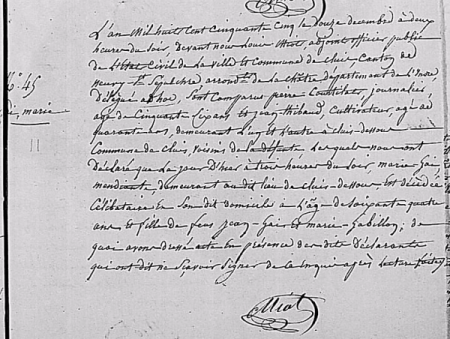 L'an Mil huit Cent Cinquante Cinq le douze decembre à deux
heure du soir, devant nous Louis Miat, adjoint officier public
de L'Etat Civil de la ville et Commune de Cluis Canton de
Neuvy St Sépulchre arrondt de la châtre département de L'Indre
Délégué ad hoc, Sont Comparus pierre journalier,
N° 45
agé de Cinquante Six ans et jean thibaud, Cultivateur, agé de
marie
quarante ans, demeurant L'un et L'autre à Cluis-dessous
Commune de Cluis, voisins de la défunte Lesquels nous ont
déclaré que Le jour D'hier à trois heures du soir, marie
mendiante, demeurant audit lieu de Cluis-dessous est décédée
Célibataire En son dit domicile à L'âge de soixante quatre
ans et fille de feus jean et marie ; de
quoi avons dressé acte En présence des dits Déclarants
qui ont dit ne Sçavoir Signer de la Enquis après Lecture faite
Miat